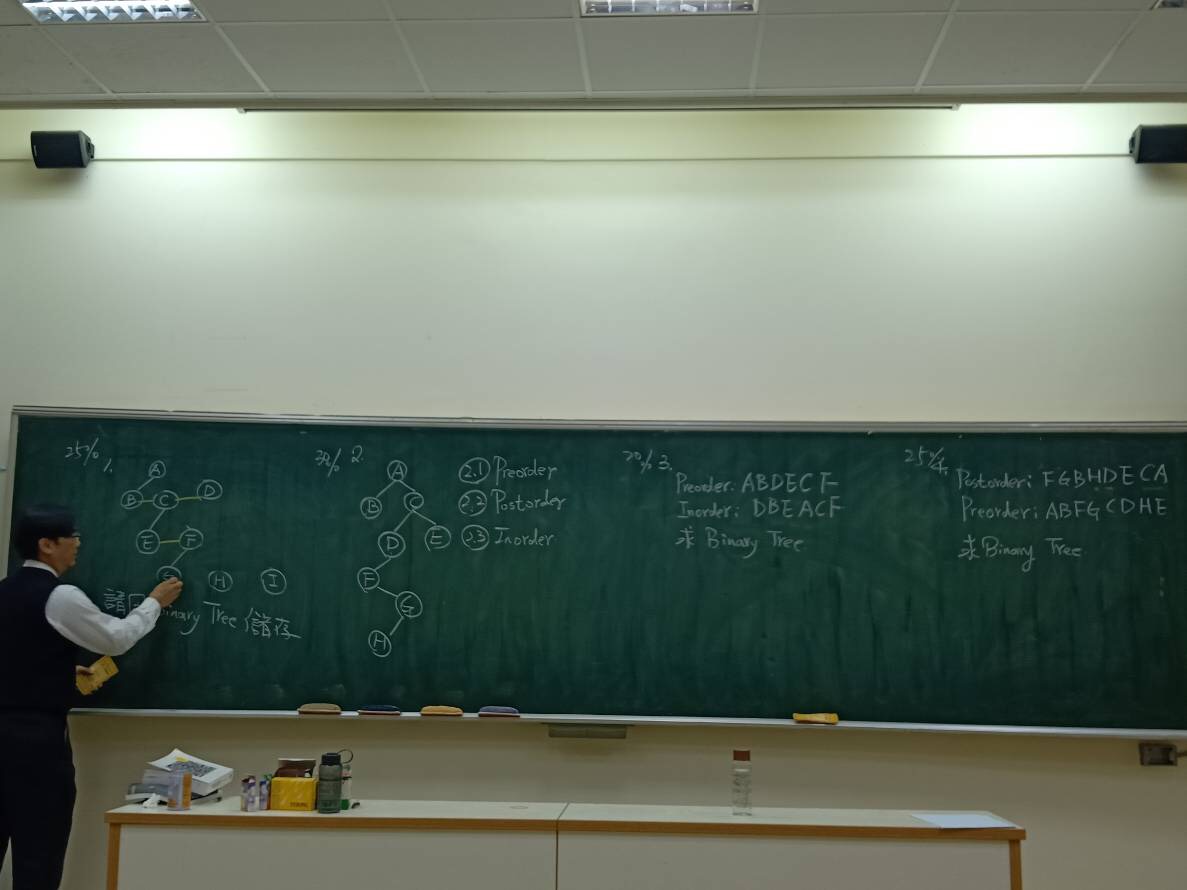 25% 1.
A
B C D
E F
G H I
請用Binary Tree 儲存
30% 2.
A
B C
D E
F
G
H
2.1 Preorder
2.2 Postorder
2.3 Inorder
20% 3.
Preorder: ABDECF
Inorder: DBEACF
求 Binary Tree
25% 4.
Postorder: FGBHDECA
Preorder: ABFGCDHE
求 Binary Tree